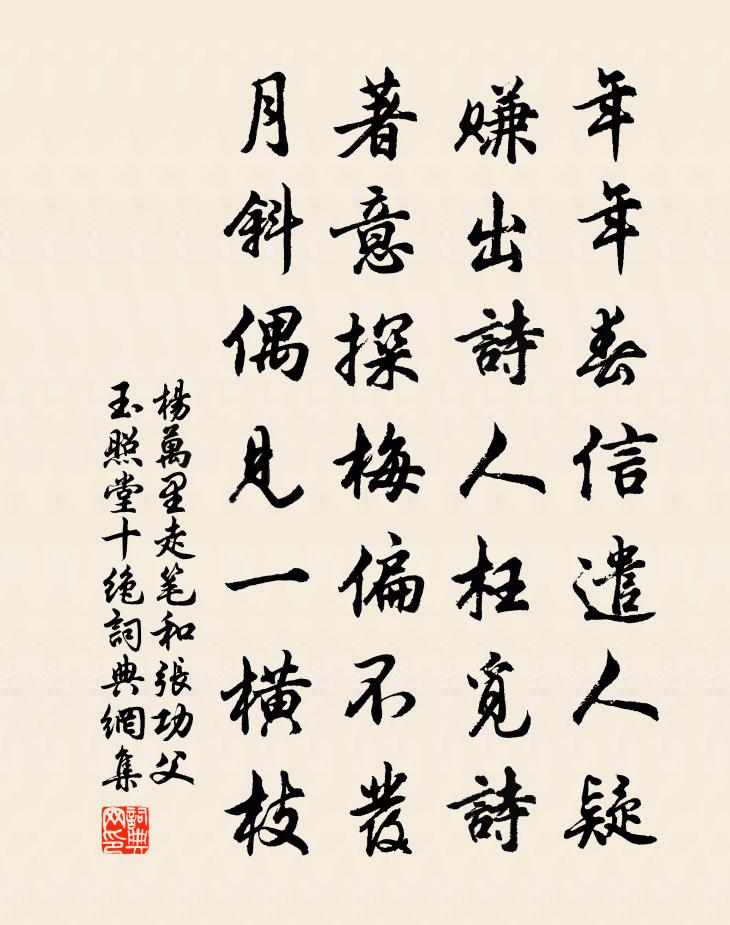 年年春信遣人疑
賺出詩人枉覓詩
著意探梅偏不發
月斜偶見一橫枝
楊萬里走笔和張功父
玉照堂十絶詞典網集
詞典网印